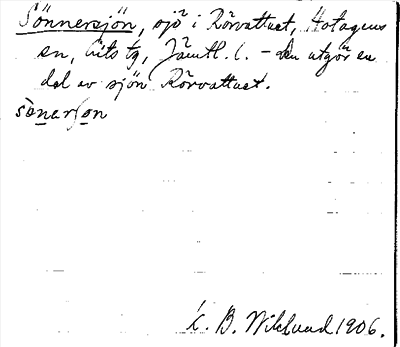 Sönnersjön, sjö i Rörvattnet, Hotagens
sn, Lits tg, Jämtl. l. – den utgör en
del av sjön Rörvattnet.
sònarʃon
K. B. Wiklund 1906.